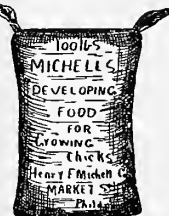 100 lbs
MICHELLS
DEVELOPING
FOOD
FOR
GROWING
Chicks
Henry F Michell C
MARKET St
Phila